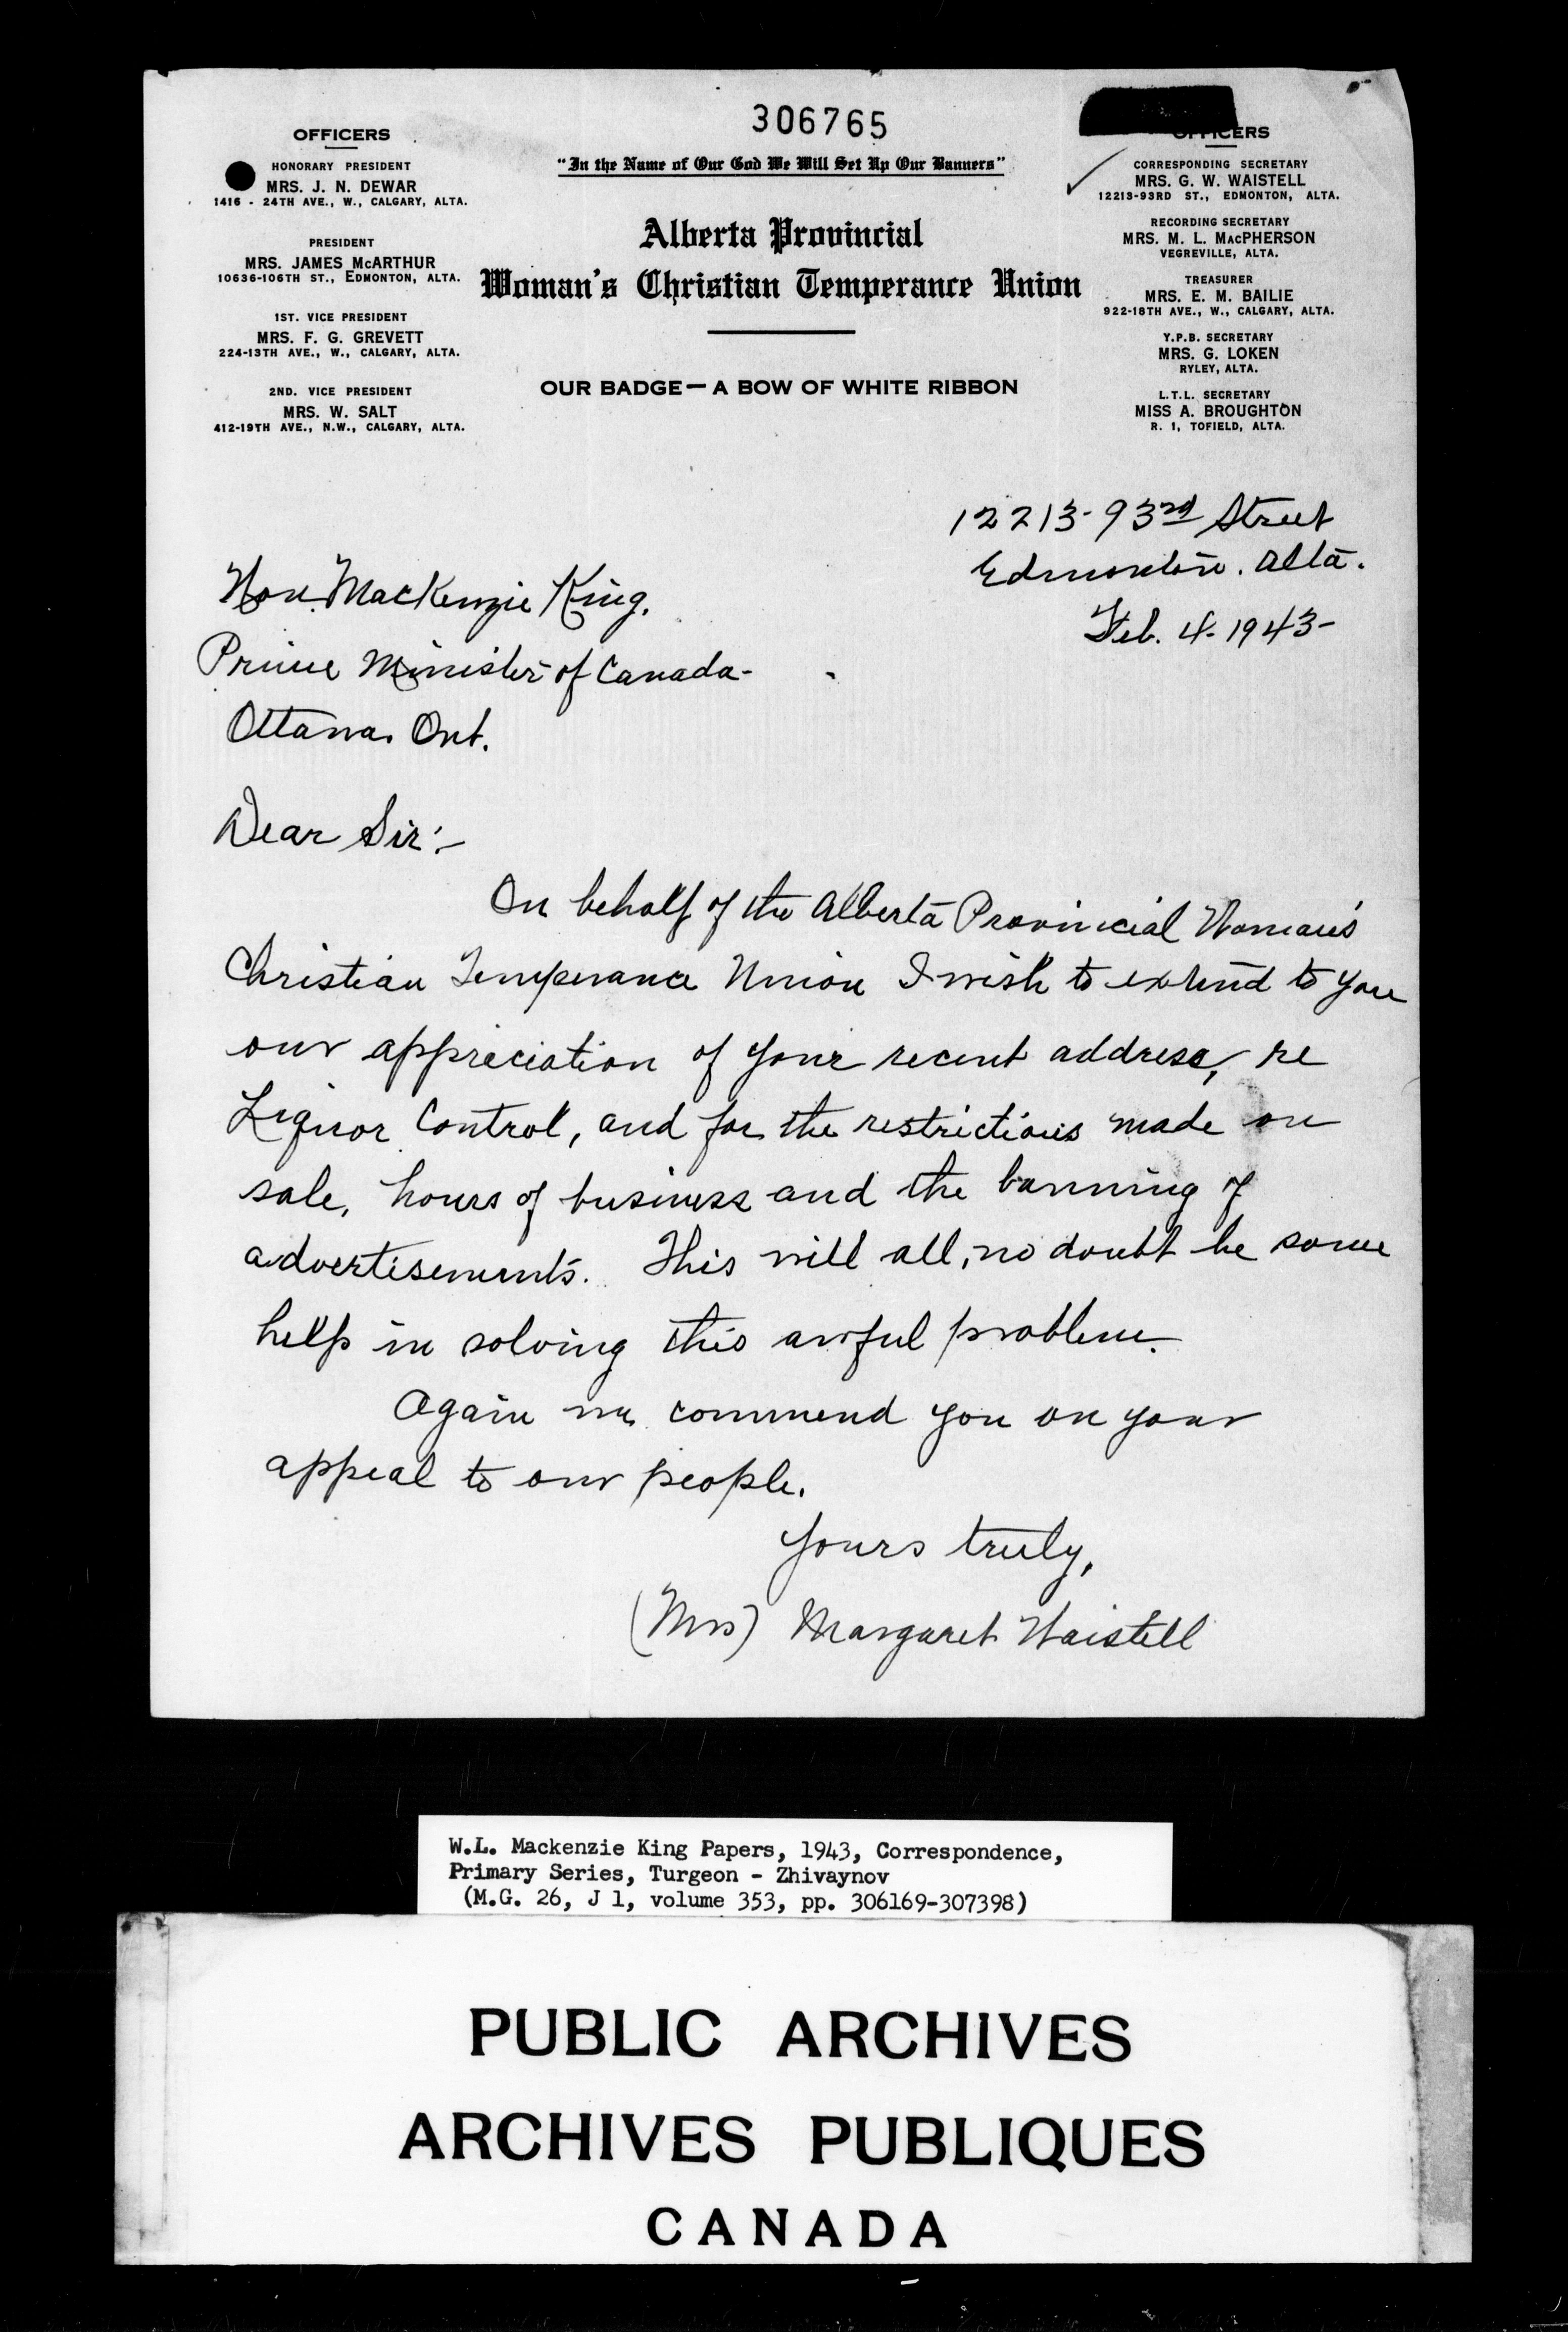 306765
"In the Name of Our God We Will Set Up Our Banners"
Alberta Provincial
Woman's Christian Temperance Union
OUR BADGE—A BOW OF WHITE RIBBON
OFFICERS
HONORARY PRESIDENT
MRS. J. N. DEWAR
1416 - 24TH AVE., W., CALGARY, ALTA.
PRESIDENT
MRS. JAMES McARTHUR
10636-106TH ST., EDMONTON, ALTA.
1ST. VICE PRESIDENT
MRS. F. G. GREVETT
224-13TH AVE., W., CALGARY, ALTA.
2ND. VICE PRESIDENT
MRS. W. SALT
412-19TH AVE., N.W., CALGARY, ALTA.
OFFICERS
CORRESPONDING SECRETARY
MRS. G. W. WAISTELL
12213-93RD ST., EDMONTON, ALTA.
RECORDING SECRETARY
MRS. M. L. MACPHERSON
VEGREVILLE, ALTA.
TREASURER
MRS. E. M. BAILIE
922-18TH AVE., W., CALGARY, ALTA.
Y.P.B. SECRETARY
MRS. G. LOKEN
RYLEY, ALTA.
L.T.L. SECRETARY
MISS A. BROUGHTON
R. 1, TOFIELD, ALTA.
12213-93rd Street
Edmonton. Alta.
Feb. 4-1943-
Hon. MacKenzie King.
Prime Minister of Canada-
Ottawa. Ont.
Dear Sir:-
On behalf of the Alberta Provincial Woman's
Christian Temperance Union I wish to extend to you
our appreciation of your recent address, re
Liquor Control, and for the restrictions made on
sale, hours of business and the banning of
advertisements. This will all, no doubt be some
help in solving this awful problem.
Again we commend you on your
appeal to our people.
Yours truly,
(Mrs) Margaret Waistell
W.L. Mackenzie King Papers, 1943, Correspondence,
Primary Series, Turgeon - Zhivaynov
(M.G. 26, J 1, volume 353, pp. 306169-307398)
PUBLIC ARCHIVES
ARCHIVES PUBLIQUES
CANADA